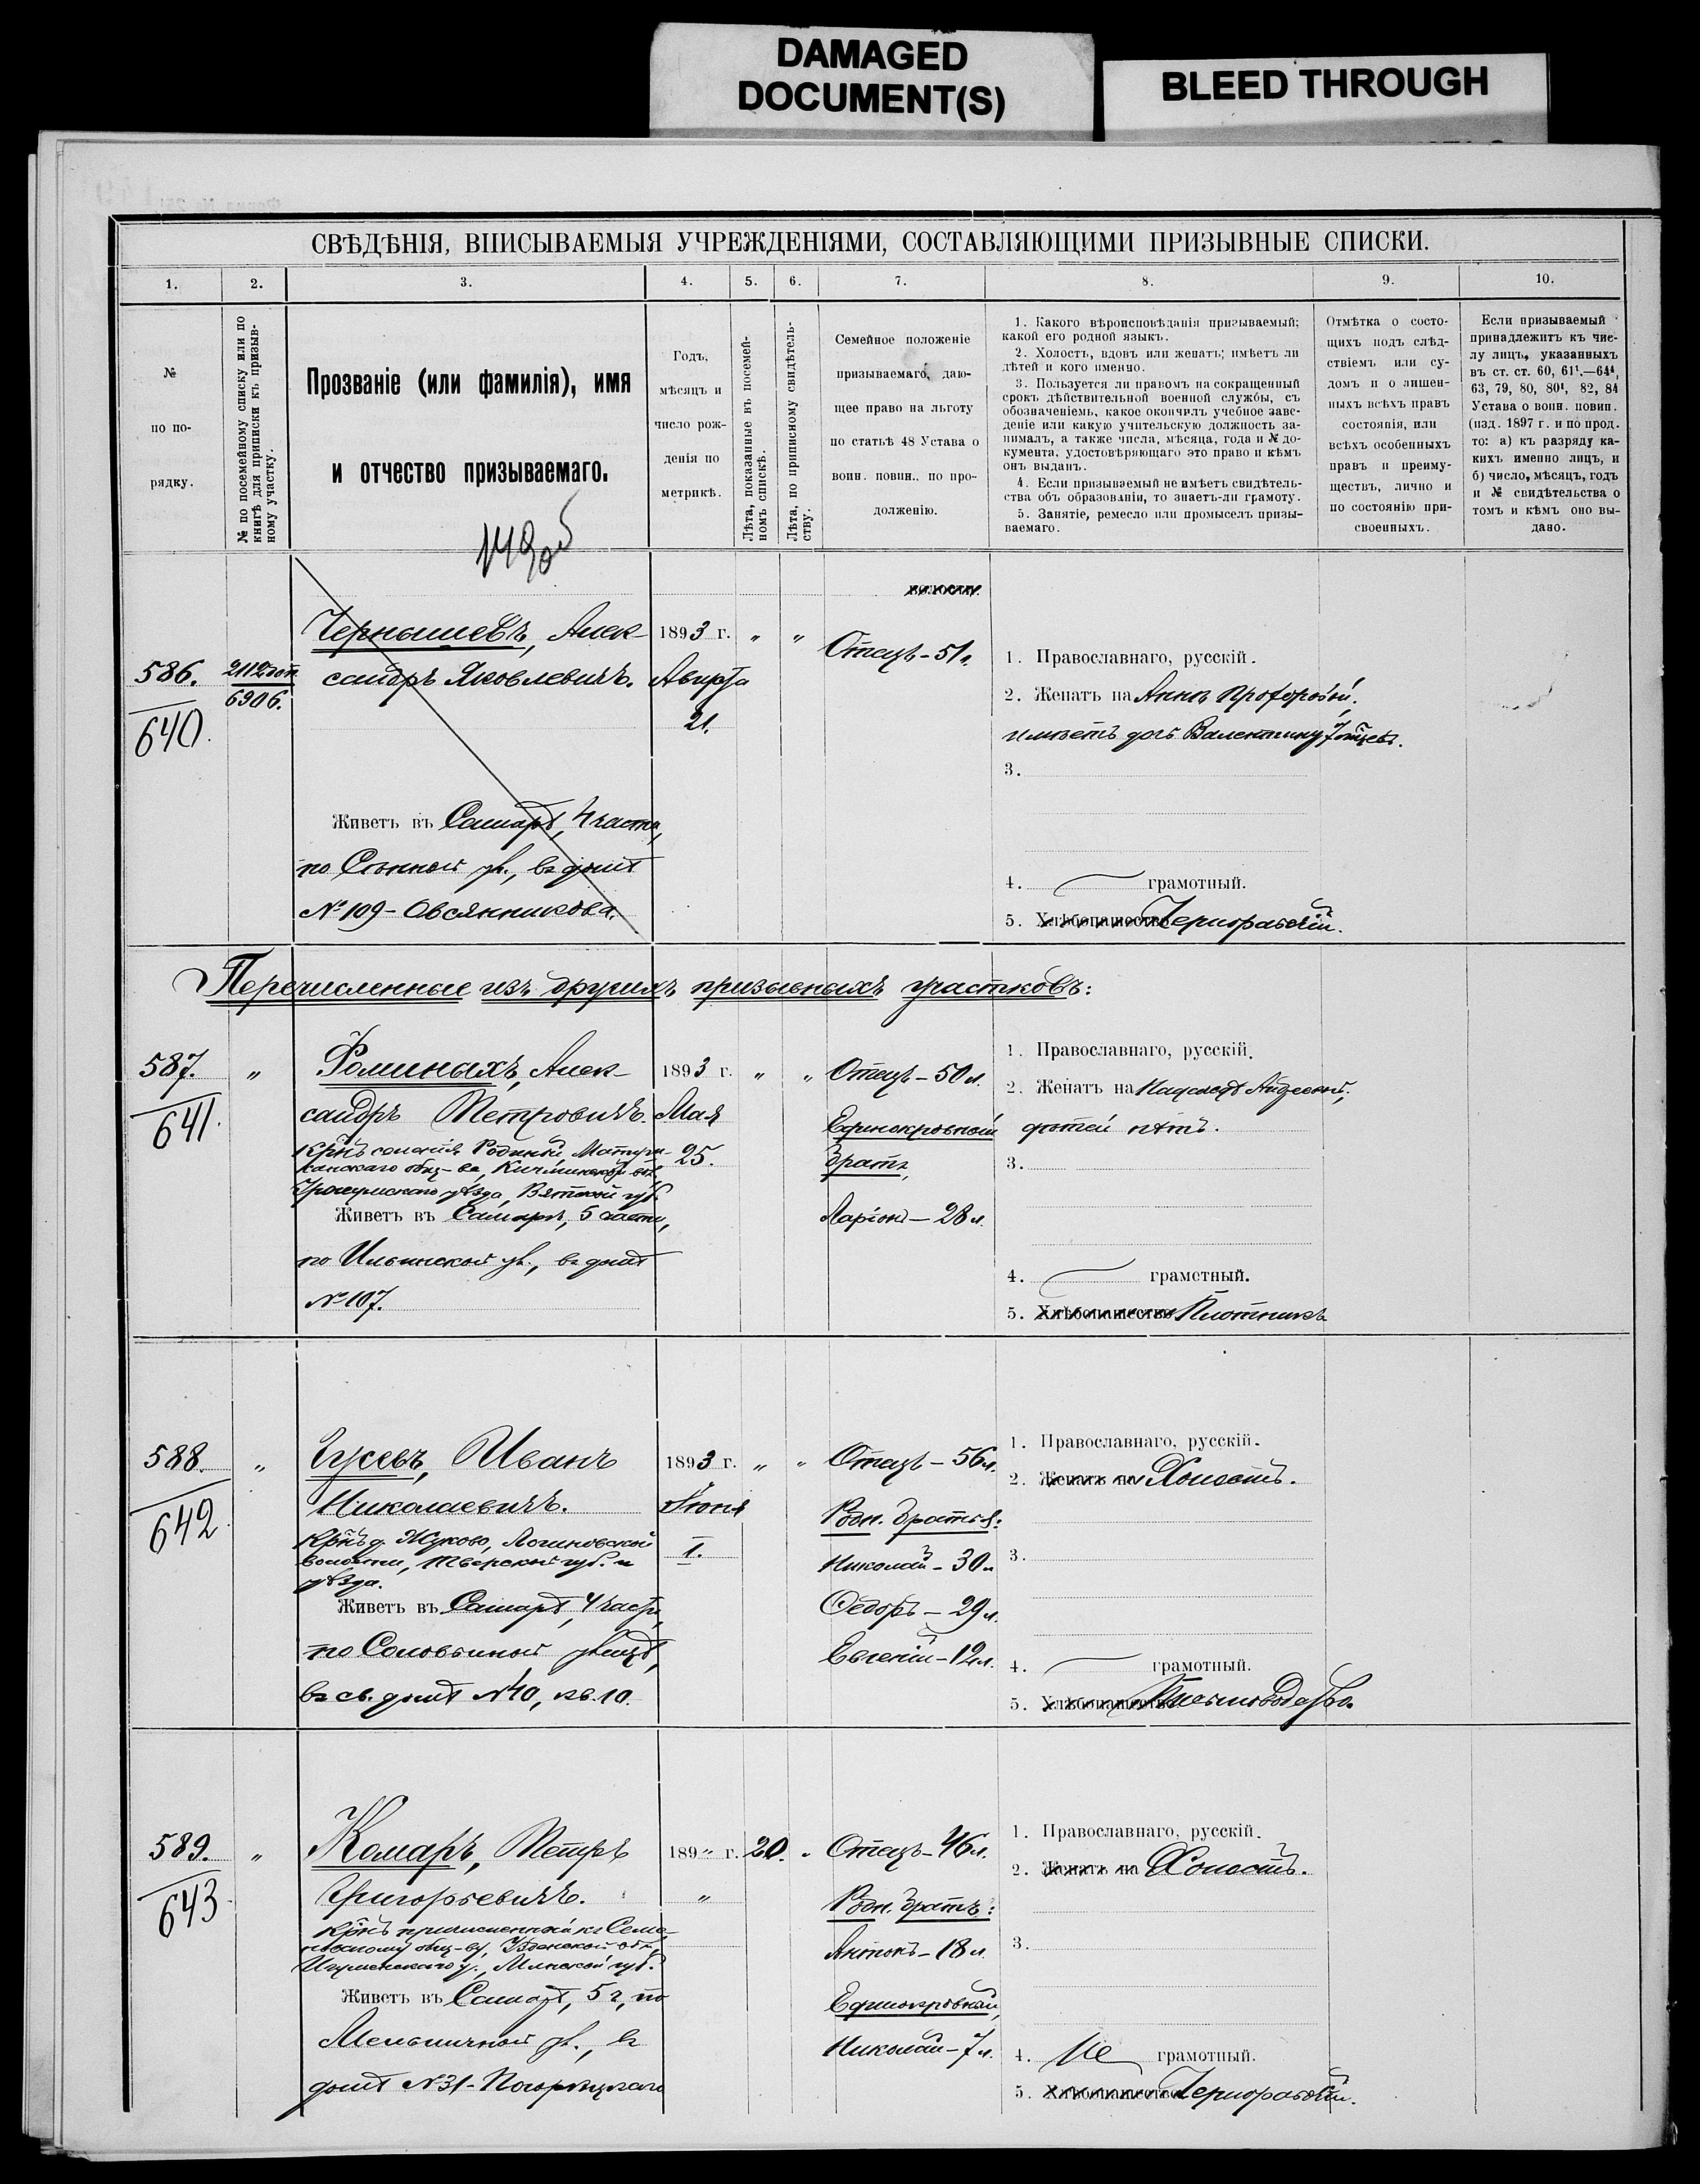 DAMAGED
DOCUMENT(S)
BLEED THROUGH
СВѢДѢНІЯ, ВПИСЫВАЕМЫЯ УЧРЕЖДЕНІЯМИ, СОСТАВЛЯЮЩИМИ ПРИЗЫВНЫЕ СПИСКИ.
1. 2. 3. 4. 5. 6. 7. 8. 9. 10.
№
по по-
рядку.
№ по посемейному списку или по
книгѣ для приписки къ призыв-
ному участку.
Прозваніе (или фамилія), имя
и отчество призываемаго.
Годъ,
мѣсяцъ и
число рож-
денія по
метрикѣ.
Лѣта, показанные въ посемей-
номъ спискѣ.
Лѣта, по приписному свидѣтель-
ству.
Семейное положеніе
призываемаго, даю-
щее право на льготу
по статьѣ 48 Устава о
воин. повин., по про-
долженію.
1. Какого вѣроисповѣданія призываемый;
какой его родной языкъ.
2. Холостъ, вдовъ или женатъ; имѣетъ ли
дѣтей и кого именно.
3. Пользуется ли правомъ на сокращенный
срокъ дѣйствительной военной службы, съ
обозначеніемъ, какое окончилъ учебное заве-
деніе или какую учительскую должность за-
нималъ, а также числа, мѣсяца, года и № до-
кумента, удостовѣряющаго это право и кѣмъ
онъ выданъ.
4. Если призываемый не имѣетъ свидѣтель-
ства объ образованіи, то знаетъ-ли грамоту.
5. Занятіе, ремесло или промыселъ призы-
ваемаго.
Отмѣтка о состо-
ящихъ подъ слѣд-
ствіемъ или су-
домъ и о лишен-
ныхъ всѣхъ правъ
состоянія, или
всѣхъ особенныхъ
правъ и преиму-
ществъ, лично и
по состоянію при-
своенныхъ.
Если призываемый
принадлежитъ къ чис-
лу лицъ, указанныхъ
въ ст. ст. 60, 61¹.—64⁴,
63, 79, 80, 80¹, 82, 84
Устава о воин. повин.
(изд. 1897 г. и по прод.
то: а) къ разряду ка-
кихъ именно лицъ, и
б) число, мѣсяцъ, годъ
и № свидѣтельства о
томъ и кѣмъ оно вы-
дано.
586.
640.
2112
6906.
Чернышевъ, Алек-
сандръ Яковлевичъ.
Живетъ въ Самарѣ, 4 части,
по Сѣнной ул., въ домѣ
№ 109 - Овсянникова.
1893 г. " "
Августа
21.
Отецъ - 51 л.
1. Православнаго, русскій.
2. Женатъ на Аннѣ Прохоровой,
имѣетъ дочь Валентину 7 мѣсяц.
3.
4. грамотный.
5. Хлѣбопашество Чернорабочій.
Перечисленные изъ другихъ призывныхъ участковъ:
587.
641.
"
Фоминыхъ, Алек-
сандръ Петровичъ.
Уржумскаго уѣзда, Вятской губ.
Живетъ въ Самарѣ, 5 части,
по Ильинской ул., въ домѣ
№ 107.
1893 г. " "
Мая
25.
Отецъ - 50 л.
Единокровный
братъ,
Ларіонъ - 28 л.
1. Православнаго, русскій.
2. Женатъ на
дѣтей нѣтъ.
3.
4. грамотный.
5. Хлѣбопашество Плотникъ
588.
642.
"
Гусевъ, Иванъ
Николаевичъ.
Крнъ д. Жуково, Логиновской
волости, Тверской губ. и
уѣзда.
Живетъ въ Самарѣ, 4 части,
по Соловьиной улицѣ,
въ св. домѣ № 10, кв. 10.
1893 г. " "
Іюня
1.
Отецъ - 56 л.
Родн. братья:
Николай - 30 л.
Ѳедоръ - 29 л.
Евгеній - 12 л.
1. Православнаго, русскій.
2. Женатъ на Холостъ.
3.
4. грамотный.
5. Хлѣбопашество Письмоводство.
589.
643.
"
Комаръ, Петръ
Григорьевичъ.
Игуменскаго у., Минской губ.
Живетъ въ Самарѣ, 5 ч., по
Мельничной ул., въ
домѣ № 31 - Погорѣцкаго
189 " г. 20. "
"
Отецъ - 46 л.
Родн. братъ:
Антонъ - 18 л.
Единокровный,
Николай - 7 л.
1. Православнаго, русскій.
2. Женатъ на Холостъ.
3.
4. Не грамотный.
5. Хлѣбопашество Чернорабочій.